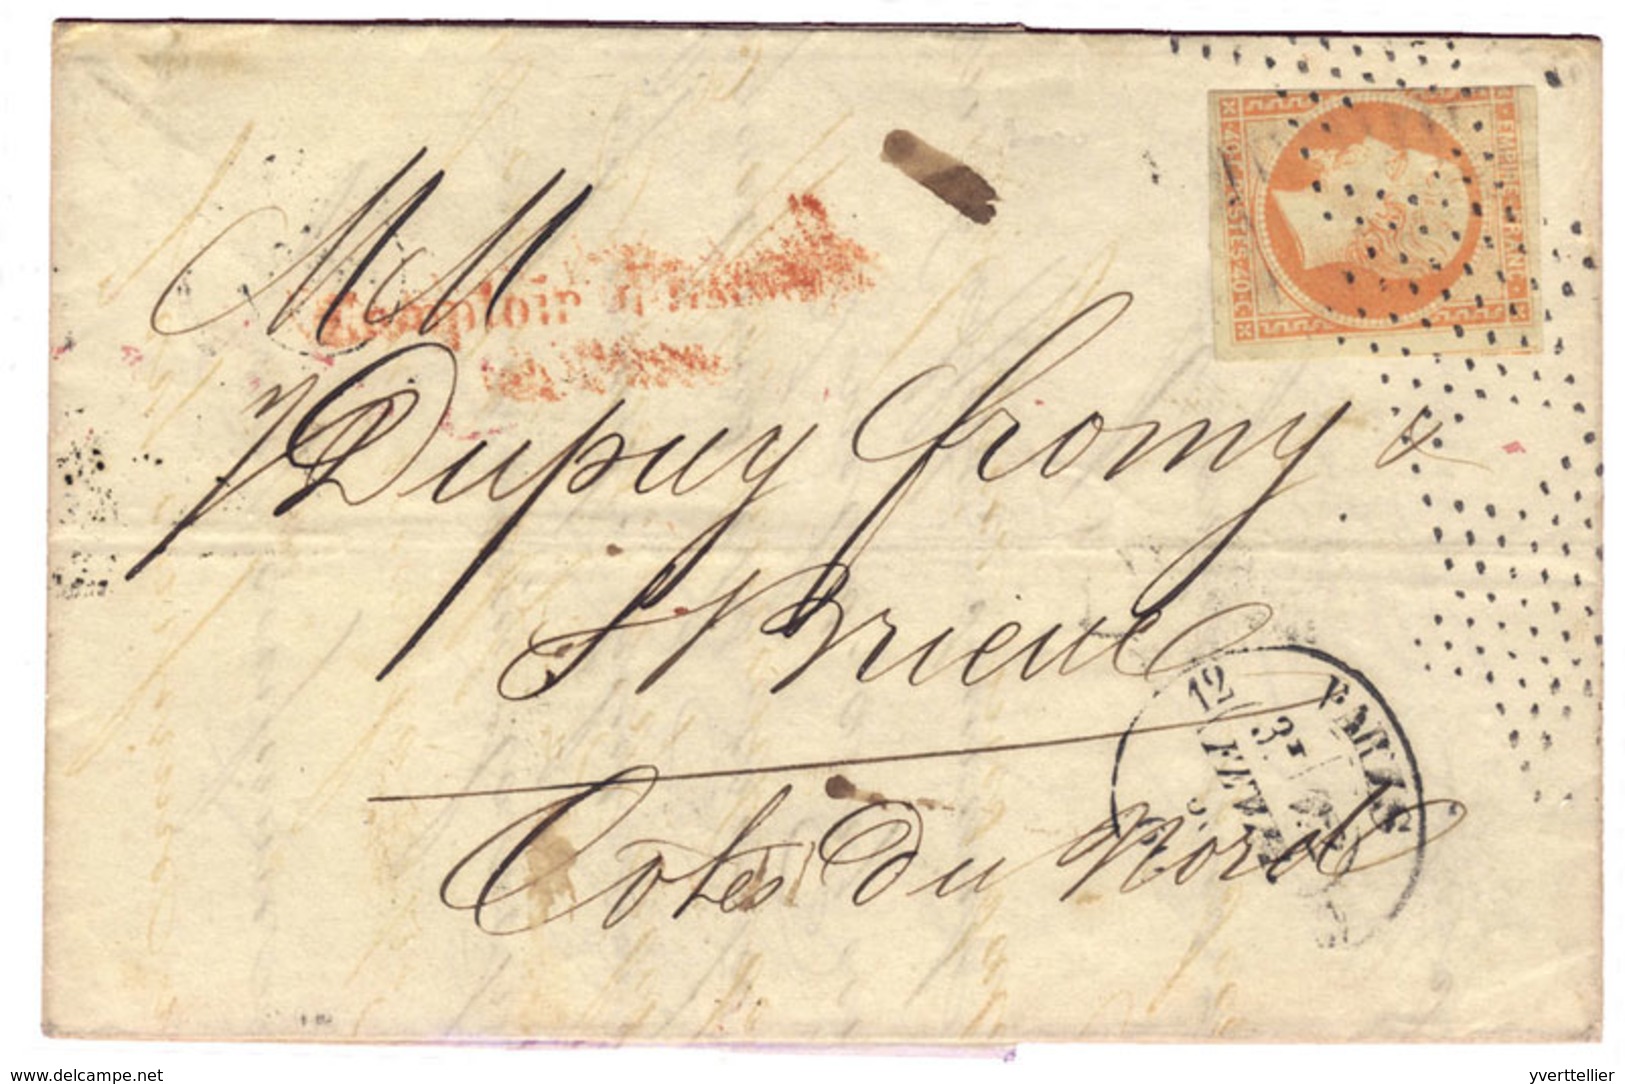 EMPIRE FRANC
40 CTES 40
MM
Comptoir
Dupuy Fromy &
St Brieuc
12
PARIS
3E
FEVR
Cotes du Nord
www.delcampe.net
yverttellier